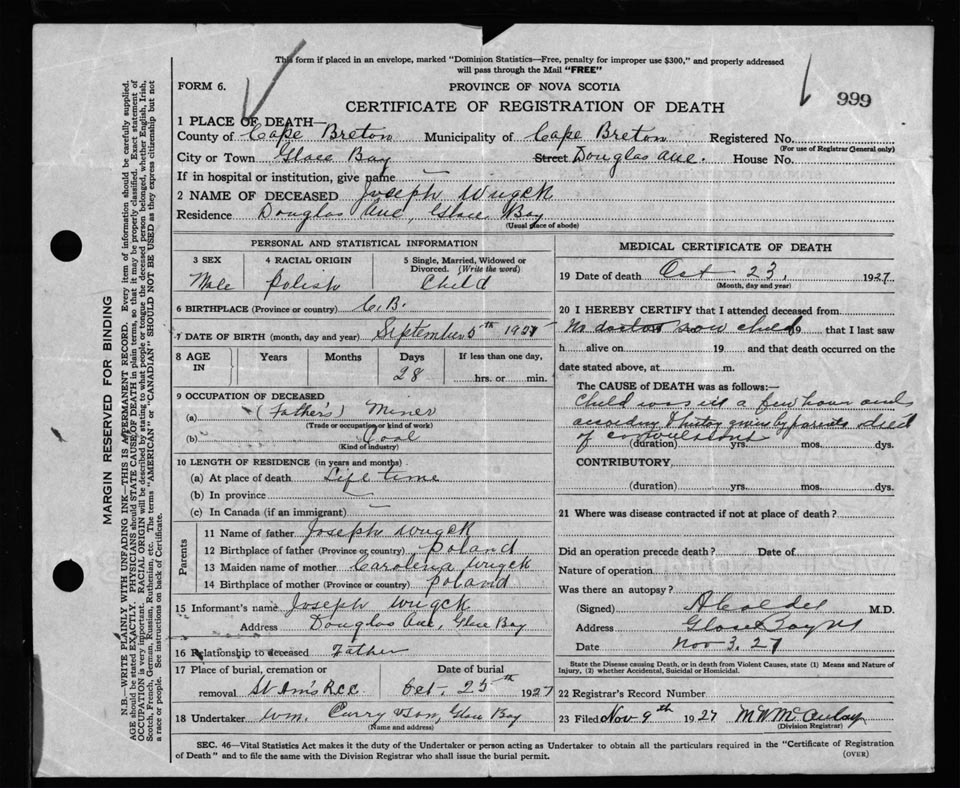 This form if placed in an envelope, marked "Dominion Statistics—Free, penalty for improper use $300," and properly addressed
will pass through the Mail "FREE"
FORM 6.
PROVINCE OF NOVA SCOTIA
999
CERTIFICATE OF REGISTRATION OF DEATH
1 PLACE OF DEATH—
County of Cape Breton Municipality of Cape Breton Registered No.
(For use of Registrar General only)
City or Town Glace Bay Street Douglas Ave. House No.
If in hospital or institution, give name —
2 NAME OF DECEASED Joseph Wugck
Residence Douglas Ave, Glace Bay
(Usual place of abode)
PERSONAL AND STATISTICAL INFORMATION
3 SEX
Male
4 RACIAL ORIGIN
Polish
5 Single, Married, Widowed or
Divorced. (Write the word)
Child
6 BIRTHPLACE (Province or country) C.B.
7 DATE OF BIRTH (month, day and year) September 5th 1927
8 AGE IN
Years
Months
Days
28
If less than one day,
hrs. or min.
9 OCCUPATION OF DECEASED
(a) (Father's) Miner
(Trade or occupation or kind of work)
(b) Coal
(Kind of industry)
10 LENGTH OF RESIDENCE (in years and months)
(a) At place of death Life time
(b) In province —
(c) In Canada (if an immigrant) —
Parents
11 Name of father Joseph Wugck
12 Birthplace of father (Province or country) Poland
13 Maiden name of mother Carolena Wugck
14 Birthplace of mother (Province or country) Poland
15 Informant's name Joseph Wugck
Address Douglas Ave, Glace Bay
16 Relationship to deceased Father
17 Place of burial, cremation or
removal St Ann's R.C.C.
Date of burial
Oct. 25th 1927
18 Undertaker Wm. Curry & Son, Glace Bay
(Name and address)
MEDICAL CERTIFICATE OF DEATH
19 Date of death Oct 23, 1927
(Month, day and year)
20 I HEREBY CERTIFY that I attended deceased from
No doctor saw child 19 that I last saw
h alive on 19 and that death occurred on the
date stated above, at m.
The CAUSE of DEATH was as follows:—
Child was ill a few hours and
according to history given by parents died
of convulsions
(duration) yrs. mos. dys.
CONTRIBUTORY
(duration) yrs. mos. dys.
21 Where was disease contracted if not at place of death?
Did an operation precede death? Date of
Nature of operation
Was there an autopsy?
(Signed) M.D.
Address Glace Bay NS
Date Nov 3, 27
State the Disease causing Death, or in death from Violent Causes, state (1) Means and Nature of
Injury, (2) whether Accidental, Suicidal or Homicidal.
22 Registrar's Record Number
23 Filed Nov 9th 1927 M W McAulay
(Division Registrar)
SEC. 46—Vital Statistics Act makes it the duty of the Undertaker or person acting as Undertaker to obtain all the particulars required in the "Certificate of Registration
of Death" and to file the same with the Division Registrar who shall issue the burial permit.
(OVER)
MARGIN RESERVED FOR BINDING
N.B.—WRITE PLAINLY WITH UNFADING INK—THIS IS A PERMANENT RECORD. Every item of information should be carefully supplied.
AGE should be stated EXACTLY. PHYSICIANS should STATE CAUSE OF DEATH in plain terms, so that it may be properly classified. Exact statement of
OCCUPATION is very important. RACIAL ORIGIN will be described by stating to what people or tongue the deceased person belonged, whether English, Irish,
Scotch, French, German, Russian, Ruthenian, etc. The terms "AMERICAN" or "CANADIAN" SHOULD NOT BE USED as they express citizenship but not
a race or people. See instructions on back of Certificate.